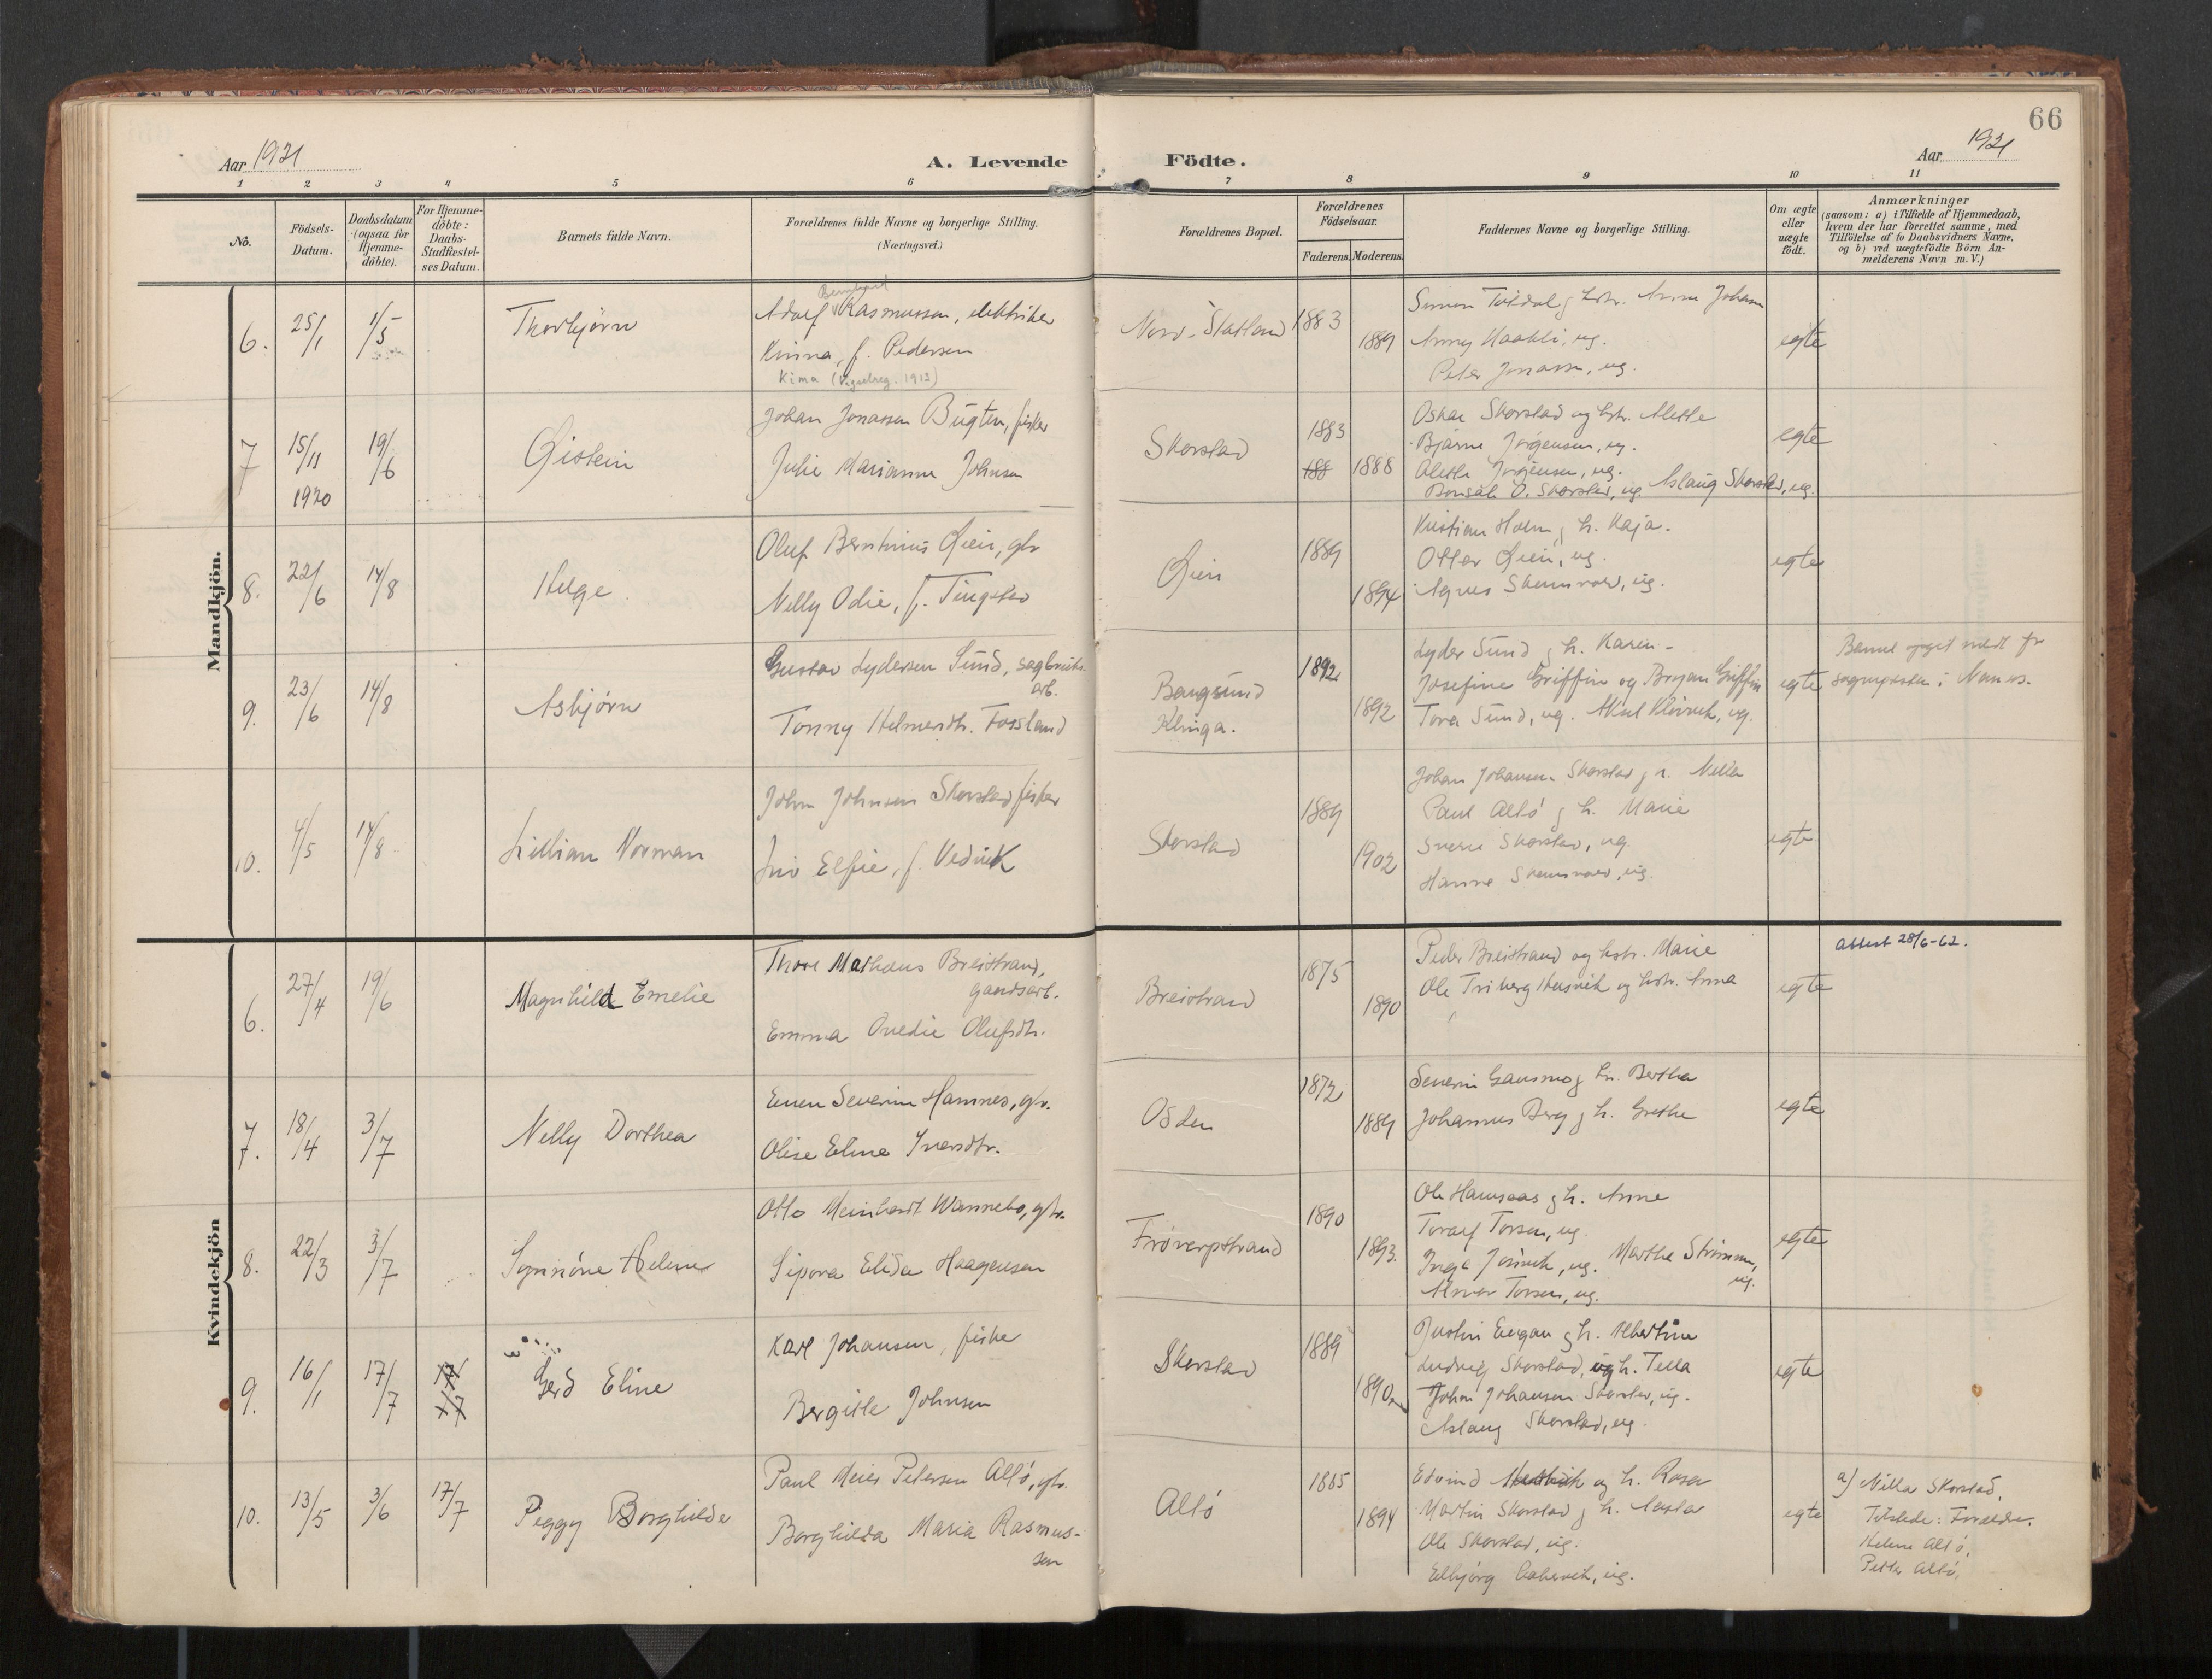 66
Aar 1921
A. Levende Födte.
Aar 1921
1 2 3 4 5 6 7 8 9 10 11
No.
Födsels-Datum.
Daabsdatum (ogsaa for Hjemme-döbte).
For Hjemme-döbte: Daabs-Stadfæstel-ses Datum.
Barnets fulde Navn.
Forældrenes fulde Navne og borgerlige Stilling.
(Næringsvei.)
Forældrenes Bopæl.
Forældrenes Födselsaar.
Faderens. Moderens.
Faddernes Navne og borgerlige Stilling.
Om ægte eller uægte födt.
Anmærkninger
(saasom: a) i Tilfælde af Hjemmedaab, hvem der har forrettet samme, med Tilföielse af to Daabsvidners Navne, og b) ved uægtefödte Börn An-melderens Navn m. V.)
Mandkjön.
6. 25/1 1/5 Thorbjørn
Bernhard
Adolf Rasmussen, elektriker
Kinna, f. Pedersen
Kima (Vigselreg. 1913)
1883
1889
Simon
Anna Johan
Anny Haakli, ug.
Peter Jonassn, ug.
egte
7 15/11 1920 19/6 Øistein
Johan Jonassen Bugten, fisker
Julie Marianne Johnsen
Skorstad
1883
188 1888
Oskar Skorstad og hstr. Alette
Bjarne Jørgensen, ug.
Alette Jørgensen, ug.
O. Skorstad, ug. Aslaug Skorstad, ug.
egte
8. 22/6 14/8 Helge
Oluf Berntinus Øien, gbr
Nelly Odie, f. Tingstad
Øien
1889
1894
Kristian Holm g h. Kaja.
Otter Øien, ug.
Agnes
egte
9. 23/6 14/8 Asbjørn
Gustav Lydersen Sund, sagbruks-
arb.
Tonny Helmersdtr. Fossland
Bangsund
Klinga.
1892
1892
Lyder Sund g h. Karen
Josefine Griffin og Bryan Griffin
Tora Sund, ug.
egte
10. 4/5 14/8 Lillian Norman
John Johnsen Skorstad fisker
Elfie, f. Vedvik
Skorstad
1889
1902
Johan Johansen Skorstad g h. Nella
Paul Altø g h. Marie
Sverre Skorstad, ug.
Hanna
egte
Kvindekjön
6. 27/4 19/6 Magnhild Emelie
Thore Matheus Breistrand,
gaardsarb.
Emma Ovedie Olufsdtr.
Breistrand
1875
1890
Peder Breistrand og hstr. Marie
Ole Triberg Husvik og hstr. Anna
egte
attest 28/6-62.
7. 18/4 3/7 Nelly Dorthea
Even Severin Hamnes, gbr.
Olise Eline Iversdtr.
Osden
1872
1889
Severin Gansmo g h. Bertha
Johannes Berg g h. Grethe
egte
8. 22/3 3/7 Synnøve Helene
Otto Meinhardt Wannebo, gbr.
Sipora Elida Haagensen
Frøverpstrand
1890
1893.
Ole Hansaas g h. Anne
Toralf Torsen, ug.
Inga Jøsvik, ug. Marthe
ug.
Torsen, ug.
egte
9. 16/1 17/7 17/7 Gerd Eline
Karl Johansen, fisker
Bergitte Johnsen
Skorstad
1889
1890
Justin g h. Albertine
Ludvig Skorstad, og h. Tella
John Johansen Skorstad, ug.
Aslaug Skorstad, ug
egte
10. 13/5 3/6 17/7 Peggy Borghilda
Paul Meier Petersen Altø, gbr.
Borghilda Maria Rasmus-
sen
Altø
1885
1894
Edvind og h. Rosa
Martin Skorstad g h. Aasta
Ole Skorstad, ug.
Elbjørg ug.
egte
a) Nilla Skorstad,
Tilstede: Forældre.
Helene Altø,
Petter Altø,